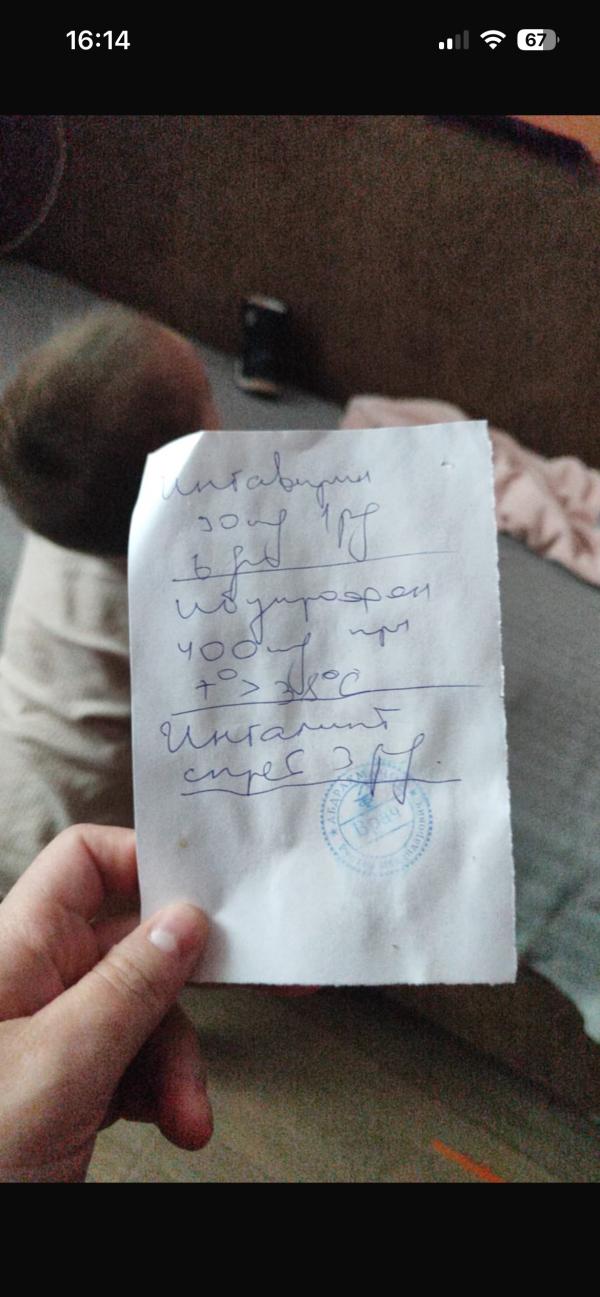 16:14
67
Ингавирин
90 mg 1 р/д
6 дн
Ибупрофен
400 mg при
t° > 38°C
Ингалипт
спрей 3 р/д.
Врач